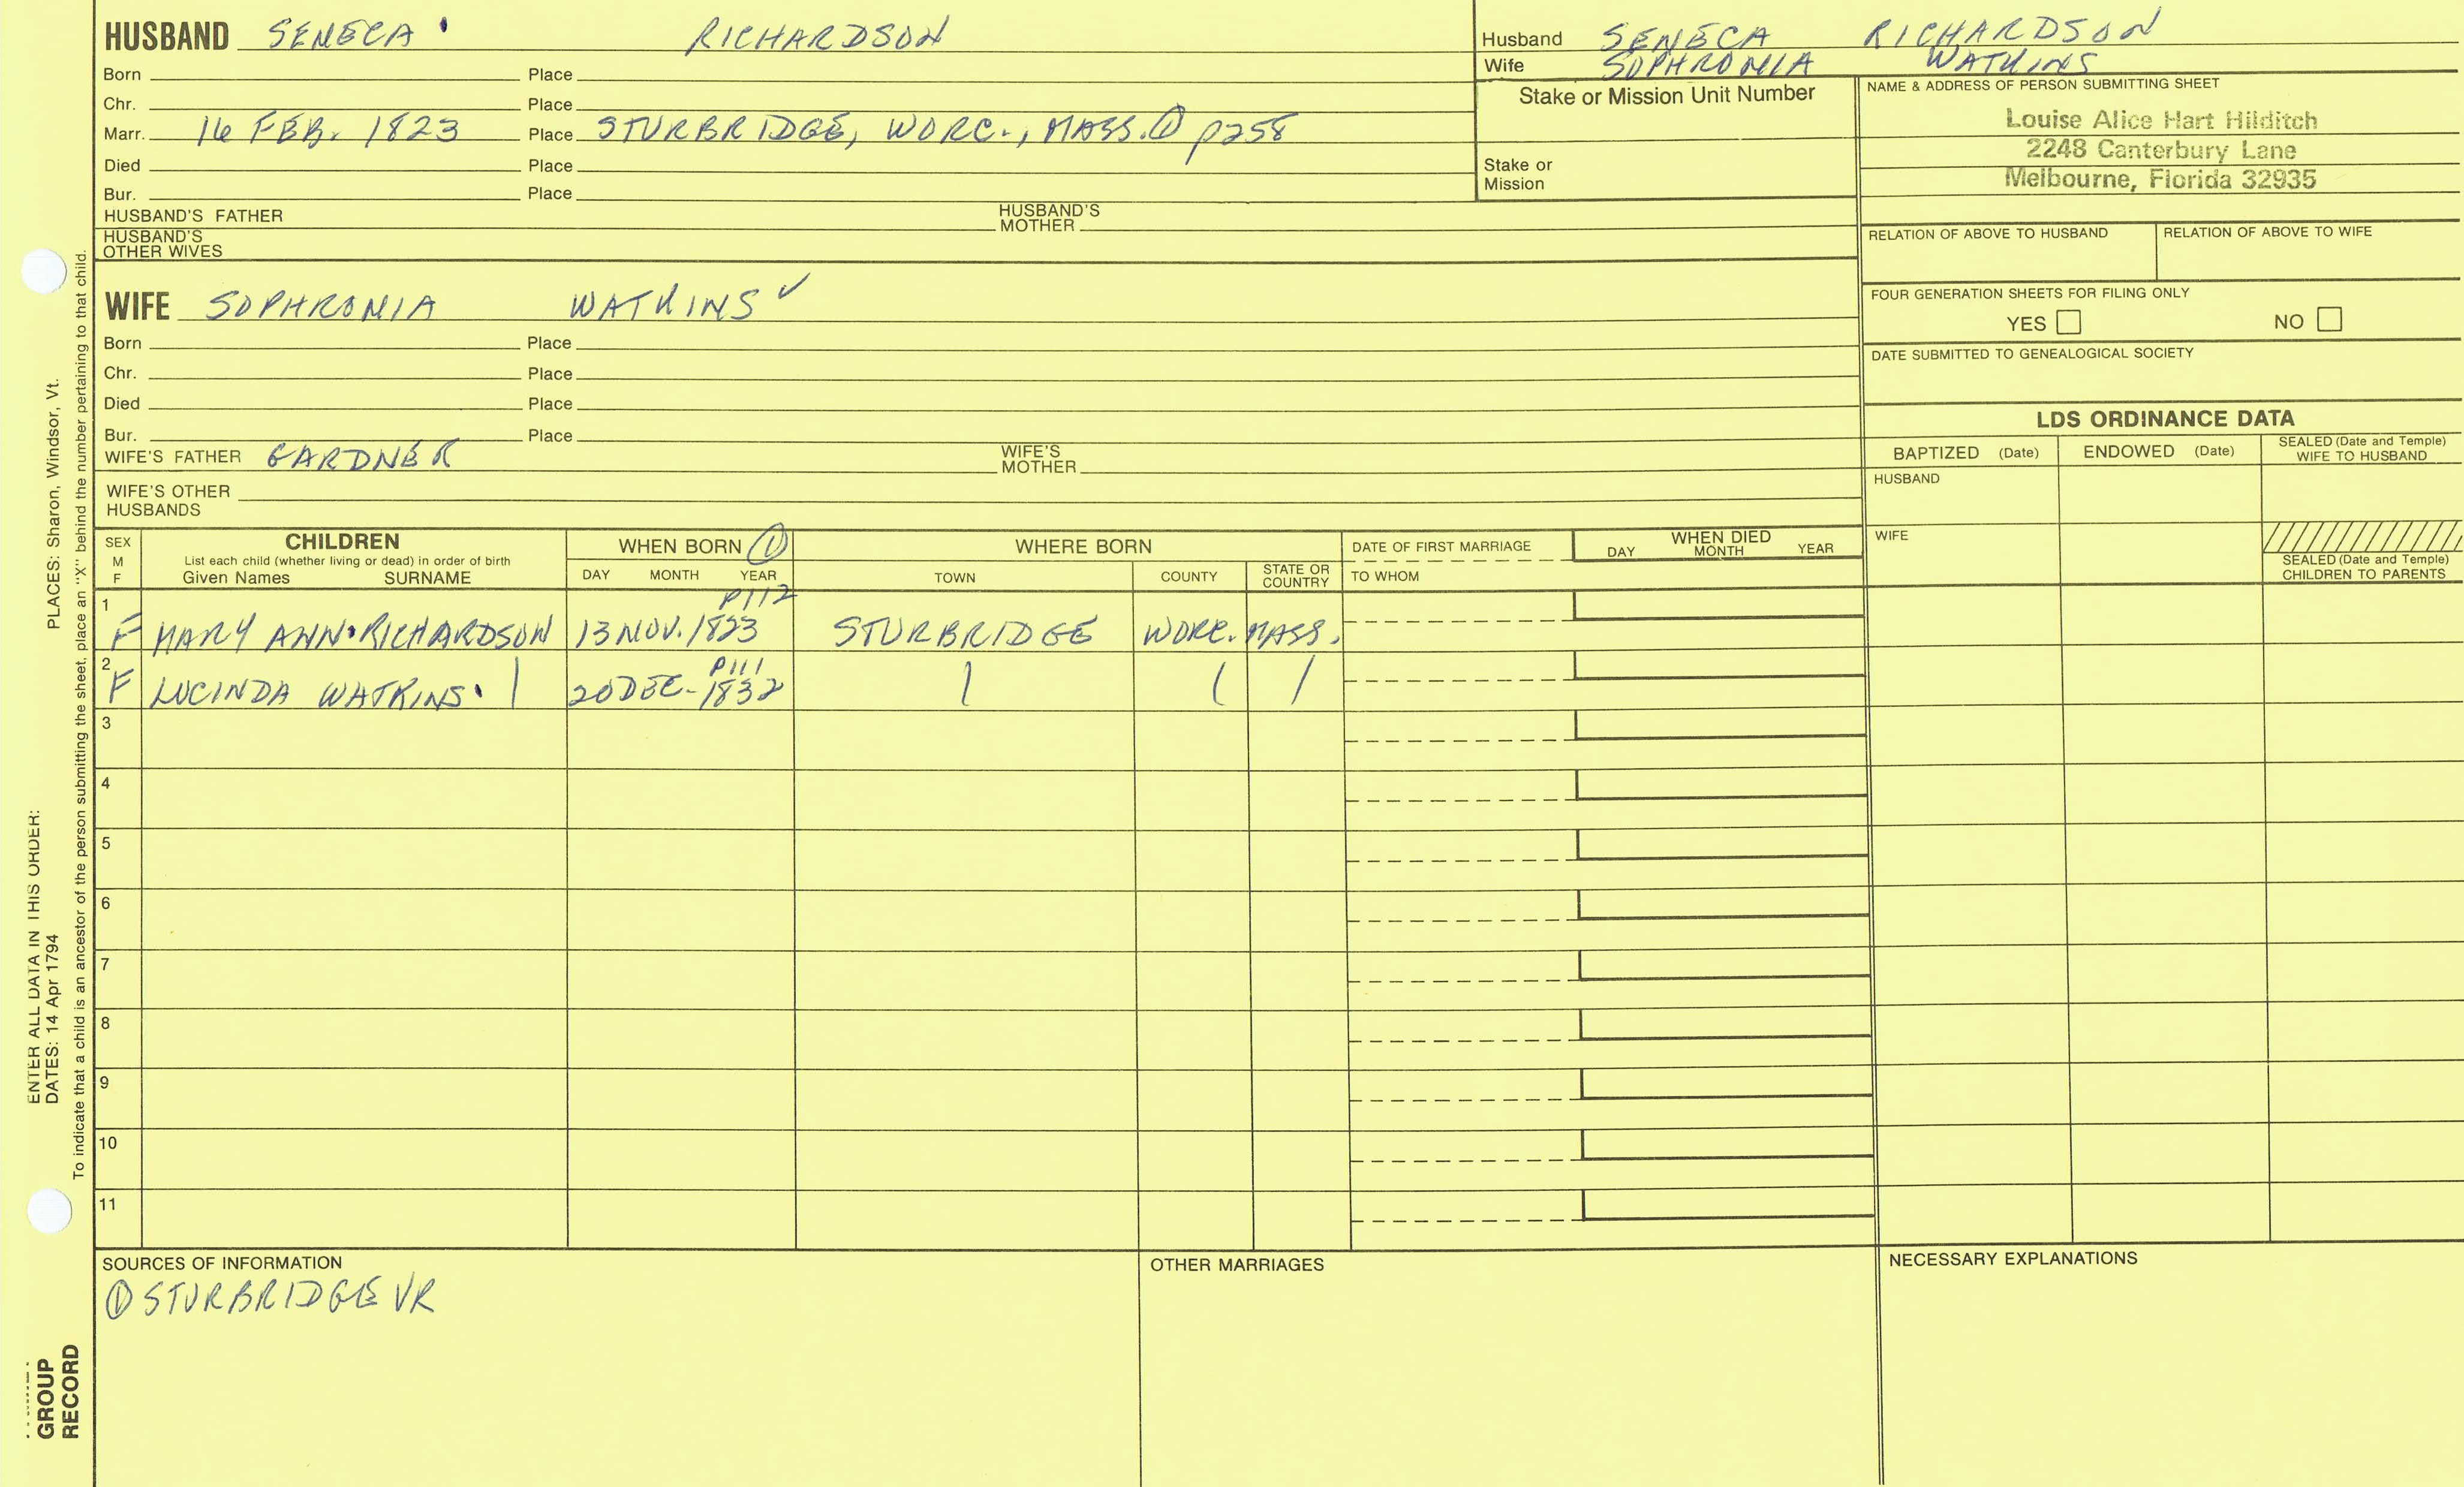 HUSBAND SENECA RICHARDSON
Born Place
Chr. Place
Marr. 16 FEB. 1823 Place STURBRIDGE, WORC., MASS. ① p258
Died Place
Bur. Place
HUSBAND'S FATHER HUSBAND'S MOTHER
HUSBAND'S OTHER WIVES
Husband SENECA RICHARDSON
Wife SOPHRONIA WATKINS
Stake or Mission Unit Number
Stake or Mission
NAME & ADDRESS OF PERSON SUBMITTING SHEET
Louise Alice Hart Hilditch
2248 Canterbury Lane
Melbourne, Florida 32935
RELATION OF ABOVE TO HUSBAND RELATION OF ABOVE TO WIFE
FOUR GENERATION SHEETS FOR FILING ONLY
YES NO
DATE SUBMITTED TO GENEALOGICAL SOCIETY
WIFE SOPHRONIA WATKINS ✓
Born Place
Chr. Place
Died Place
Bur. Place
WIFE'S FATHER GARDNER WIFE'S MOTHER
WIFE'S OTHER HUSBANDS
LDS ORDINANCE DATA
BAPTIZED (Date) ENDOWED (Date) SEALED (Date and Temple) WIFE TO HUSBAND
HUSBAND
WIFE
SEALED (Date and Temple) CHILDREN TO PARENTS
SEX M F
CHILDREN
List each child (whether living or dead) in order of birth
Given Names SURNAME
WHEN BORN ①
DAY MONTH YEAR
WHERE BORN
TOWN COUNTY STATE OR COUNTRY
DATE OF FIRST MARRIAGE
TO WHOM
WHEN DIED
DAY MONTH YEAR
P112
1 F MARY ANN RICHARDSON 13 NOV. 1823 STURBRIDGE WORC. MASS.
P111
2 F LUCINDA WATKINS 20 DEC. 1832
3
4
5
6
7
8
9
10
11
SOURCES OF INFORMATION
① STURBRIDGE VR
OTHER MARRIAGES
NECESSARY EXPLANATIONS
ENTER ALL DATA IN THIS ORDER:
DATES: 14 Apr 1794 PLACES: Sharon, Windsor, Vt.
To indicate that a child is an ancestor of the person submitting the sheet, place an "X" behind the number pertaining to that child.
GROUP
RECORD